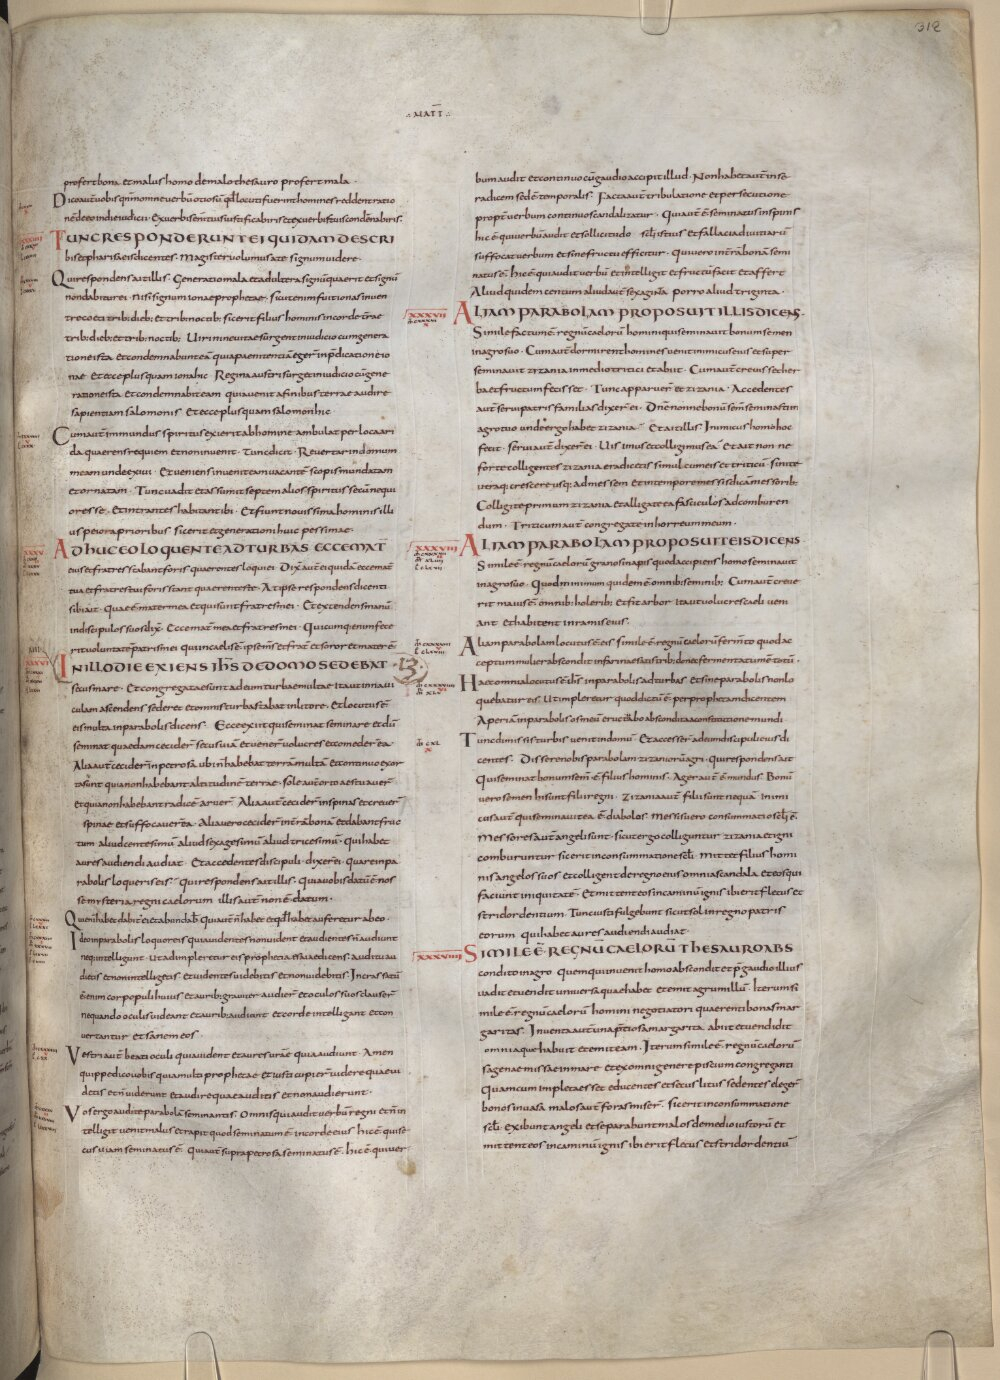 312
∴ MATT̅ ∴
profert bona· et malus homo de malo thesauro profert mala·
Dico aut̅ uobis qm̅ omne uerbu̅ otiosu̅ qđ locuti fuerint homines reddent ratio
ne̅ de eo in die iudicii· Ex uerbis eni̅ tuis iustificaberis et ex uerbis tuis conde̅naberis·
XXXIIII
TUNC RESPONDERUNT EI QUIDAM DE SCRI
bis et pharisaeis dicentes· Magister uolumus a te signum uidere·
Qui respondens ait illis· Generatio mala et adultera signu̅ quaerit et signu̅
non dabitur ei· nisi signum ionae prophetae· sicut enim fuit ionas in uen
tre coeti trib; dieb; et trib; noctib; sic erit filius hominis in corde t̅rae
trib; dieb; et trib; noctib; Uiri nineuitae surgent in iudicio cum genera
tione ista· et condemnabunt ea̅ quia paenitentia̅ eger̅ in p̅dicatione io
nae· Et ecce plus quam iona hic· Regina austri surget in iudicio cu̅ gene
ratione ista et condemnabit eam· quia uenit a finibus terrae audire
sapientiam salomonis· Et ecce plus quam salomon hic·
Cum aut̅ immundus spiritus exierit ab homine ambulat per loca ari
da quaerens requiem et non inuenit· Tunc dicit· Reuertar in domum
meam unde exiui· Et ueniens inuenit eam uacante̅ scopis mundatam
et ornatam· Tunc uadit et assumit septem alios spiritus secu̅ nequi
ores se· et intrantes habitant ibi· Et fiunt nouissima hominis illi
us peiora prioribus· sic erit et generationi huic pessimae·
XXXV
ADHUC EO LOQUENTE AD TURBAS ECCE MAT̅
eius et fratres stabant foris quaerentes loqui ei· Dix̅ aut̅ ei quida̅ ecce mat̅
tua et fratres tui foris stant quaerentes te· At ipse respondens dicenti
sibi ait· Quae e̅ mater mea et qui sunt fratres mei· Et extendens manu̅
in discipulos suos dix̅· Ecce mat̅ mea et fratres mei· Quicumq; enim fece
rit uoluntate̅ patris mei qui in caelis e̅· ipse m̅s et frat̅ et soror et mater e̅·
XXXVI
IN ILLO DIE EXIENS IH̅S DE DOMO SEDEBAT
13
secus mare· Et congregatae sunt ad eum turbae multae ita ut in naui
culam ascendens sederet et omnis turba stabat in litore· Et locutus e̅
eis multa in parabolis dicens· Ecce exiit qui seminat seminare· et du̅
seminat quaedam cecider̅ secus uia̅ et uener̅ uolucres et comeder̅ ea·
Alia aut̅ cecider̅ in petrosa̅ ubi n̅ habebat terra̅ multa̅ et continuo exor
ta sunt quia non habebant altitudine̅ terrae· sole aut̅ orto aestuauer̅
et quia non habebant radice̅ aruer̅· Alia aut̅ cecider̅ in spinas et creuer̅
spinae et suffocauer̅ ea· Alia uero cecider̅ in t̅ra̅ bona̅ et dabant fruc
tum aliud centesimu̅ aliud sexagesimu̅ aliud tricesimu̅· Qui habet
aures audiendi audiat· Et accedentes discipuli dixer̅ ei· quare in pa
rabolis loqueris eis· Qui respondens ait illis· Quia uobis datu̅ e̅ nos
se mysteria regni caelorum illis aut̅ non e̅ datum·
Qui eni̅ habet dabit̅ ei et abundab̅· Qui aut̅ n̅ habet et qđ habet auferetur ab eo·
Ideo in parabolis loquor eis quia uidentes non uident et audientes n̅ audiunt
neq; intellegunt· ut adimpletur eis prophetia esaiae dicens· auditu au
dietis et non intellegetis· et uidentes uidebitis et non uidebitis· Incrassatu̅
e̅ enim cor populi huius et aurib; grauiter audier̅ et oculos suos clauser̅
ne quando oculis uideant et aurib; audiant et corde intellegant et con
uertantur et sanem eos·
Vestri aut̅ beati oculi quia uident et aures urae̅ quia audiunt· Amen
quippe dico uobis quia multi prophetae et iusti cupier̅ uidere quae ui
detis et n̅ uiderunt et audire quae auditis et non audierunt·
Vos ergo audite parabola̅ seminantis· Omnis qui audit uerbu̅ regni et n̅ in
tellegit uenit malus et rapit quod seminatum e̅ in corde eius hic e̅ qui se
cus uiam seminatus e̅· Qui aut̅ supra petrosa seminatus e̅· hic e̅ qui uer
bum audit et continuo cu̅ gaudio accipit illud· Non habet aut̅ in se
radicem sed e̅ temporalis· Facta aut̅ tribulatione et persecutione
propt̅ uerbum continuo scandalizatur· Qui aut̅ e̅ seminatus in spinis
hic e̅ qui uerbu̅ audit et sollicitudo sclī istius et fallacia diuitiaru̅
suffocat uerbum et sine fructu efficitur· Qui uero in t̅ra̅ bona̅ semi
natus e̅· hic e̅ qui audit uerbu̅ et intellegit et fructu̅ facit et affert
Aliud quidem centum aliud aut̅ sexaginta porro aliud triginta·
XXXVII
ALIAM PARABOLAM PROPOSUIT ILLIS DICENS·
Simile factum e̅ regnu̅ caeloru̅ homini qui seminauit bonum semen
in agro suo· Cum aut̅ dormirent homines uenit inimicus eius et super
seminauit zizania in medio tritici et abiit· Cum aut̅ creuisset her
ba et fructum fecisset· Tunc apparuer̅ et zizania· Accedentes
aut̅ serui patris familias dixer̅ ei· Dn̅e nonne bonu̅ sem̅ seminasti in
agro tuo unde ergo habet zizania· Et ait illis· Inimicus homo hoc
fecit· serui aut̅ dixer̅ ei· Uis imus et colligimus ea· Et ait non ne
forte colligentes zizania eradicetis simul cum eis et triticu̅· sinite
utraq; crescere usq; ad messem et in tempore messis dicam messorib;
Colligite primum zizania et alligate ea fasciculos ad combure̅
dum· Triticum aut̅ congregate in horreum meum·
XXXVIII
ALIAM PARABOLAM PROPOSUIT EIS DICENS·
Simile e̅ regnu̅ caeloru̅ grano sinapis quod accipiens homo seminauit
in agro suo· Quod minimum quidem e̅ omnib; seminib; Cum aut̅ creue
rit maius e̅ omnib; holerib; et fit arbor ita ut uolucres caeli ueni
ant et habitent in ramis eius·
Aliam parabolam locutus e̅ eis· simile e̅ regnu̅ caeloru̅ ferm̅to quod ac
ceptum mulier abscondit in farinae satis trib; donec fermentatu̅ e̅ totu̅·
Haec omnia locutus e̅ ih̅s in parabolis ad turbas· Et sine parabolis non lo
quebatur eis· Ut impleretur quod dictu̅ e̅ per propheta̅ dicentem
Aperia̅ in parabolis os meu̅ eructabo abscondita a constitutione mundi
Tunc dimissis turbis uenit in domu̅· Et accesser̅ ad eum discipuli eius di
centes· Dissere nobis parabolam zizanioru̅ agri· Qui respondens ait
Qui seminat bonum sem̅ e̅ filius hominis· Ager aut̅ e̅ mundus· Bonu̅
uero semen hi sunt filii regni· Zizania aut̅ filii sunt nequa̅· Inimi
cus aut̅ qui seminauit ea e̅ diabolos· Messis uero consummatio sclī e̅·
Messores aut̅ angeli sunt· sicut ergo colliguntur zizania et igni
comburuntur sic erit in consummatione sclī· Mittet filius homi
nis angelos suos et colligent de regno eius omnia scandala et eos qui
faciunt iniquitate̅· Et mittent eos in caminu̅ ignis ibi erit fletus et
stridor dentium· Tunc iusti fulgebunt sicut sol in regno patris
eorum· qui habet aures audiendi audiat·
XXXVIIII
SIMILE E̅ REGNU̅ CAELORU̅ THESAURO ABS
condito in agro· Quem qui inuenit homo abscondit et p̅ gaudio illius
uadit et uendit uniuersa quae habet et emit agrum illu̅· Iterum si
mile e̅ regnu̅ caeloru̅ homini negotiatori quaerenti bonas mar
garitas· Inuenta aut̅ una p̅tiosa margarita· abiit et uendidit
omnia quae habuit et emit eam· Iterum simile e̅ regnu̅ caeloru̅
sagenae missae in mare· et ex omni genere piscium congreganti
Quam cum impleta esset educentes et secus litus sedentes eleger̅
bonos in uasa malos aut̅ foras miser̅· Sic erit in consummatione
sclī· Exibunt angeli et separabunt malos de medio iustoru̅ et
mittent eos in caminu̅ ignis ibi erit fletus et stridor dentiu̅